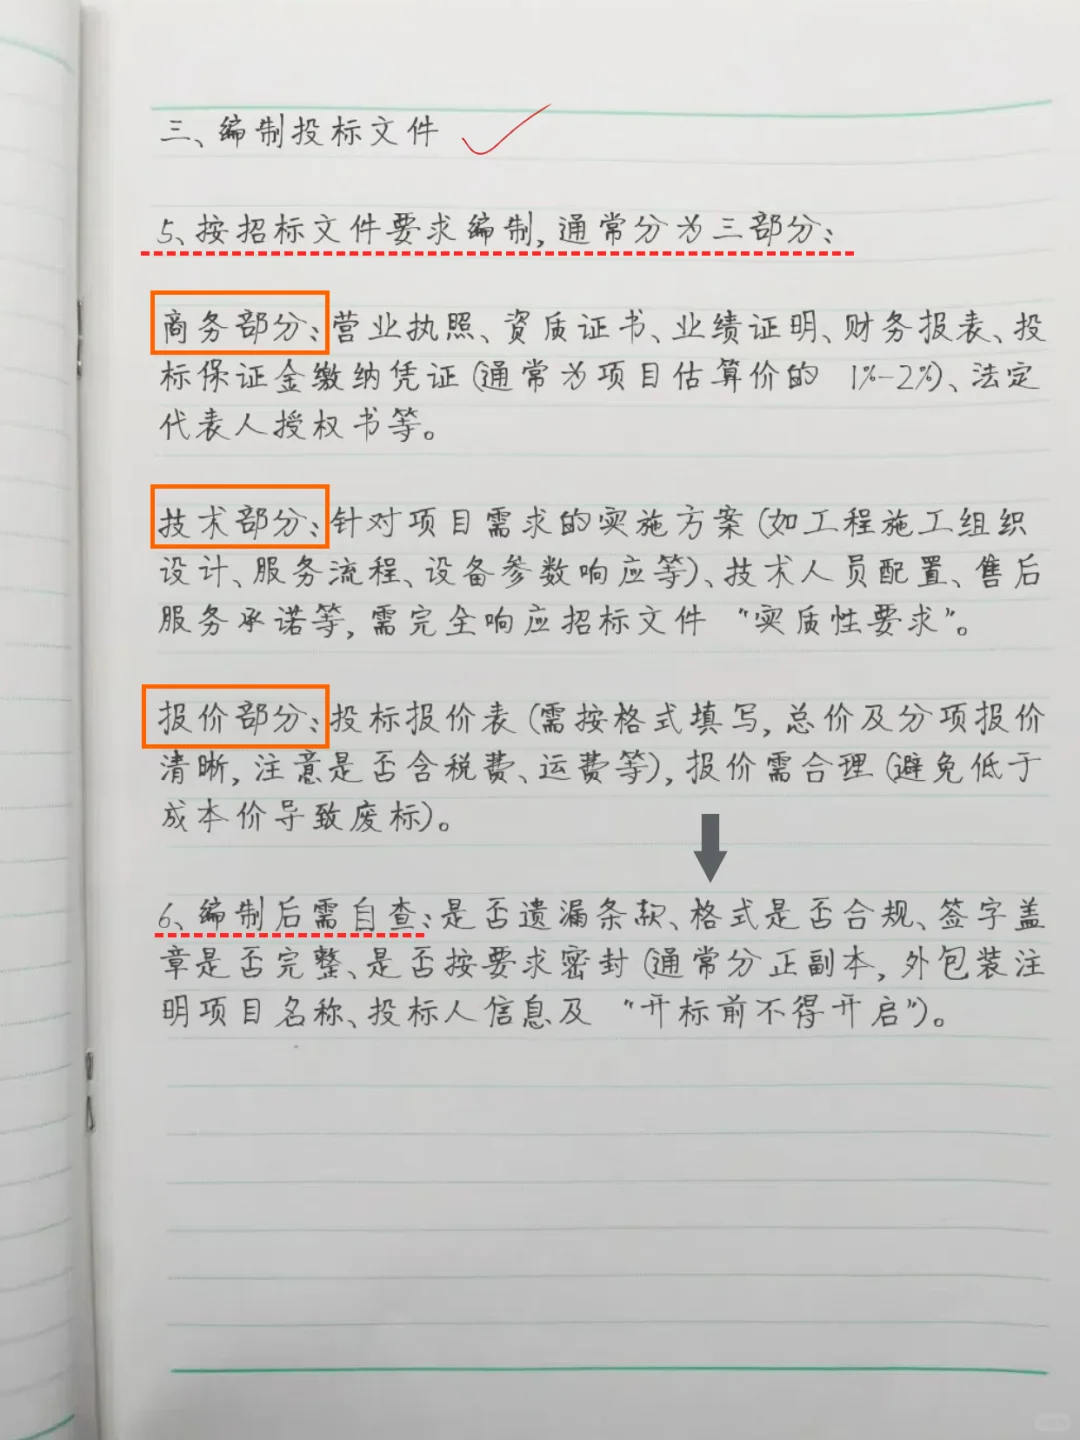 三、编制投标文件
5、按招标文件要求编制,通常分为三部分:
商务部分:营业执照、资质证书、业绩证明、财务报表、投
标保证金缴纳凭证(通常为项目估算价的 1%-2%)、法定
代表人授权书等。
技术部分:针对项目需求的实施方案(如工程施工组织
设计、服务流程、设备参数响应等)、技术人员配置、售后
服务承诺等,需完全响应招标文件 "实质性要求"。
报价部分:投标报价表(需按格式填写,总价及分项报价
清晰,注意是否含税费、运费等),报价需合理(避免低于
成本价导致废标)。
6、编制后需自查:是否遗漏条款、格式是否合规、签字盖
章是否完整、是否按要求密封(通常分正副本,外包装注
明项目名称、投标人信息及 "开标前不得开启")。